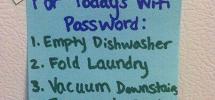 For Todays Wifi
Password:
1. Empty Dishwasher
2. Fold Laundry
3. Vacuum Downstairs